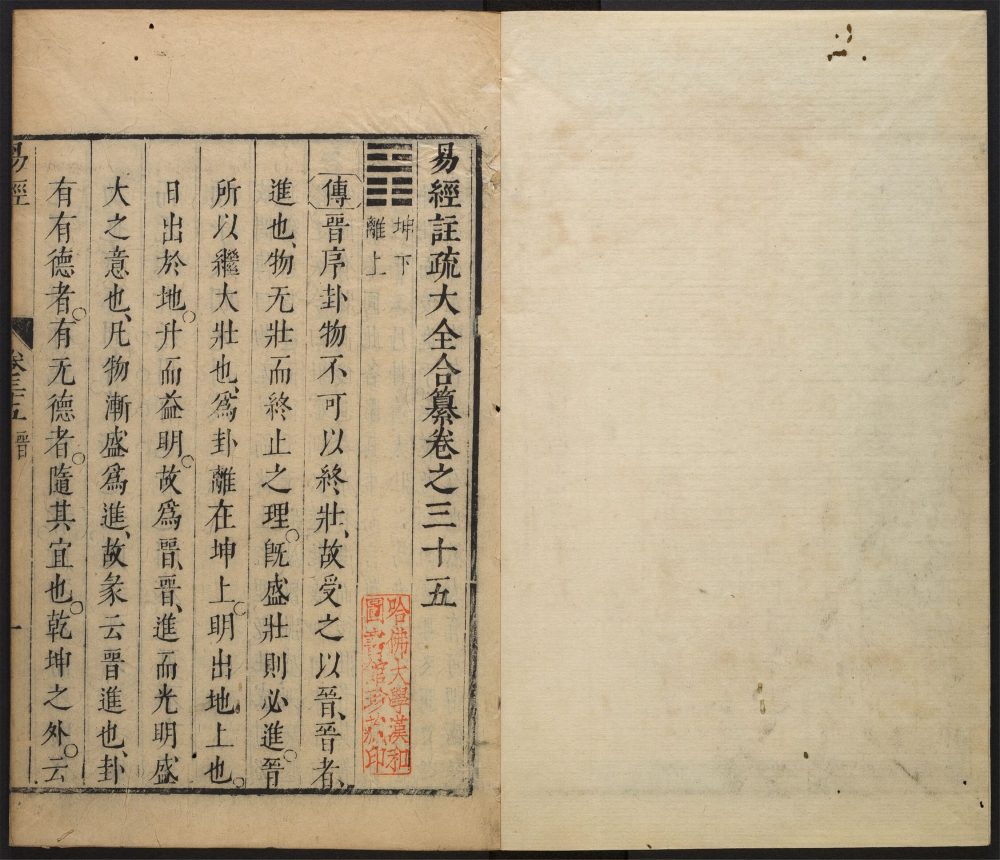 易經註疏大全合纂卷之三十五
坤下
離上
傳晉序卦物不可以終壯、故受之以晉、晉者、
進也、物无壯而終止之理。旣盛壯則必進。晉
所以繼大壯也、爲卦離在坤上。明出地上也。
日出於地。升而益明。故爲晉、晉、進而光明盛
大之意也、凡物漸盛爲進、故彖云晉進也、卦
有有德者。有无德者。隨其宜也。乾坤之外。云
易經
卷三十五 晉
一
哈佛大學漢和
圖書館珍藏印